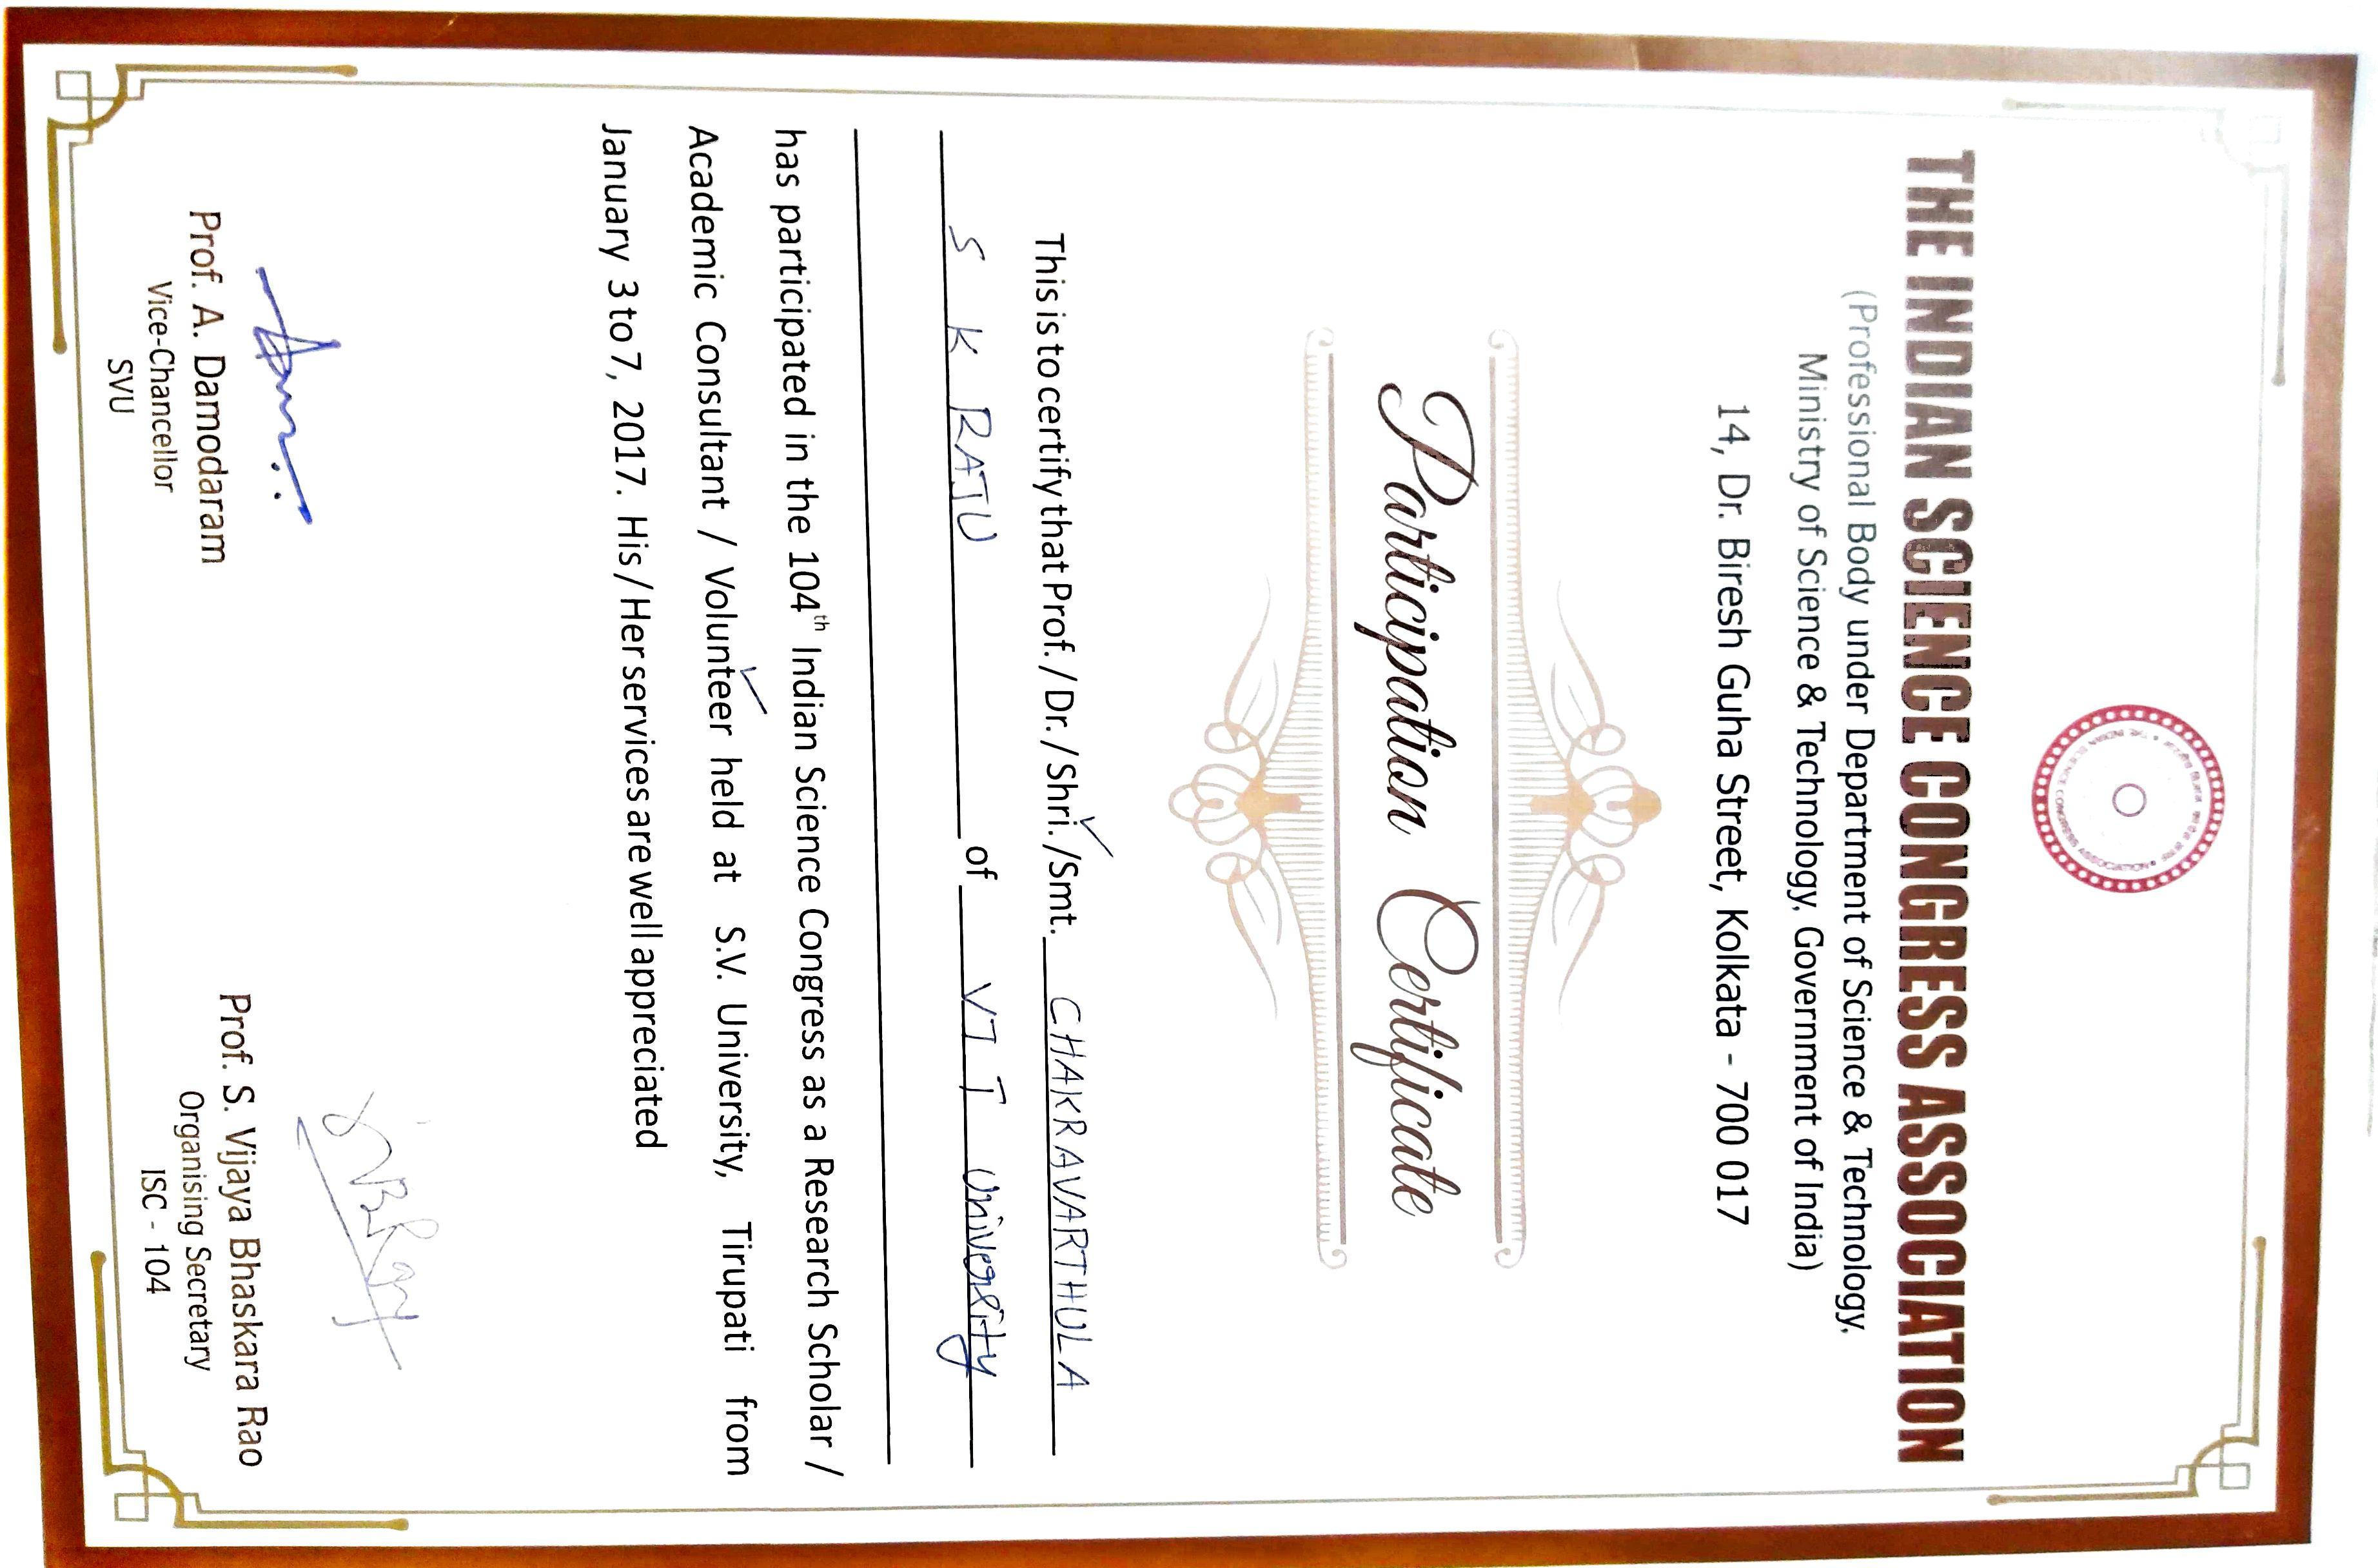 THE INDIAN SCIENCE CONGRESS ASSOCIATION
(Professional Body under Department of Science & Technology,
Ministry of Science & Technology, Government of India)
14, Dr. Biresh Guha Street, Kolkata - 700 017
Participation Certificate
This is to certify that Prof. / Dr. / Shri. /Smt. CHAKRAVARTHULA
S K RAJU of VIT University
has participated in the 104th Indian Science Congress as a Research Scholar /
Academic Consultant / Volunteer held at S.V. University, Tirupati from
January 3 to 7, 2017. His / Her services are well appreciated
Prof. A. Damodaram
Vice-Chancellor
SVU
Prof. S. Vijaya Bhaskara Rao
Organising Secretary
ISC - 104